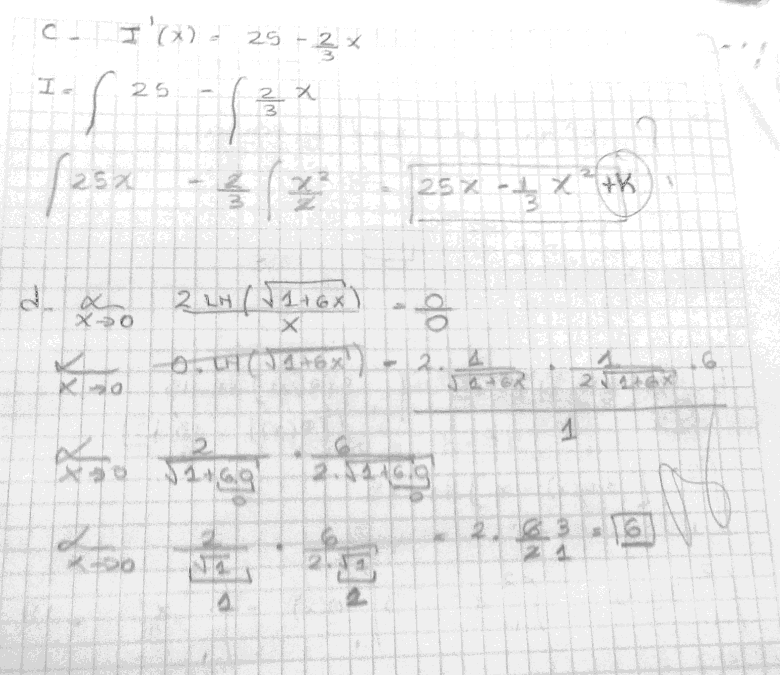 C- I'(x) = 25 - 2/3 x
I = ∫ 25 - ∫ 2/3 x
∫ 25x - 2/3 ∫ x²/2 = 25x - 1/3 x² + K ?
d- x→0 2 LN(√1+6x) / x = 0/0
x→0 0.LN(√1+6x) - 2. 1/√1+6x . 1/2√1+6x . 6 / 1
x→0 2/√1+6.0 . 6/2.√1+6.0
0 0
x→0 2/√1 . 6/2.√1 = 2. 6/2 3/1 = 6
1 1